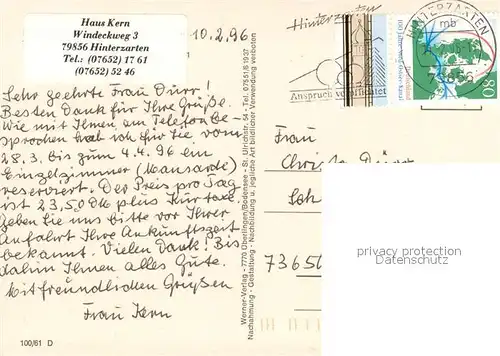 Haus Kern
Windeckweg 3
79856 Hinterzarten
Tel.: (07652) 17 61
(07652) 52 46
10.2.96
Sehr geehrte Frau Dürr!
Besten Dank für Ihre Grüße.
Wie mit Ihnen am Telefon be-
sprochen hab ich für Sie vom
28.3. bis zum 4.4.96 ein
Einzelzimmer (Mansarde)
reserviert. Der Preis pro Tag
ist 23,50 DM plus Kurtaxe.
Geben Sie uns bitte vor Ihrer
Anfahrt Ihre Ankunftszeit
bekannt. Vielen Dank! Bis
dahin Ihnen alles Gute.
Mit freundlichen Grüßen
Frau Kern
100/61 D
Werner-Verlag - 7770 Überlingen/Bodensee - St. Ulrichstr. 54 - Tel. 07551/61937
Nachahmung - Gestaltung - Nachbildung u. jegliche Art bildlicher Verwendung verboten
Hinterzarten
Anspruch verpflichtet
HINTERZARTEN
mb
79856
80
Frau
73650
privacy protection
watermark